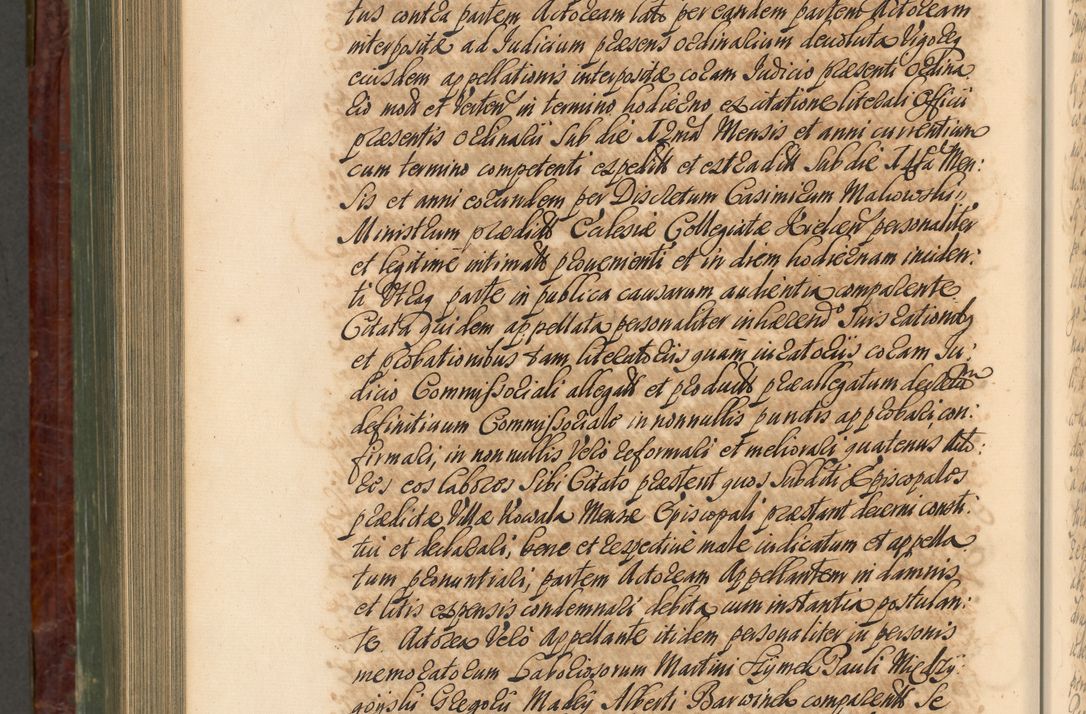 tus contra partem Actoream lato per eandem partem Actoream
interposita ad Judicium præsens ordinarium devoluta Vigoreq
eiusdem appellationis interpositæ coram Judicio præsenti Ordina
rio mods et Verten in termino hodierno ex citatione literali Officii
præsentis Ordinarii Sub die 12ma Mensis et anni currentium
cum termino competenti expedits et extradits Sub die Men:
sis et anni eorundem per Discretum Casimirum Malrowski
Ministrum prædicts Ecclesiæ Collegiatæ Kielcen personaliter
et legitime intimats provenienti et in diem hodiernam inciden:
ti Utraq parte in publica causarum audientia comparente
Citata quidem appellata personaliter inhærendo Suis rationibq
et probationibus tam literatoriis quam iuratoriis coram Ju:
dicio Commissoriali allegats et products præallegatum decretum
definitivum Commissoriale in nonnullis punctis approbari, con:
firmari, in nonnullis Vero reformari et meliorari quatenus Acto:
res eos labores Sibi Citato præstent quos Subditi Episcopales
prædictæ Villæ Kowala Mensæ Episcopali præstant decerni consti:
tui et declarari, bene et respective male iudicatum et appella
tum pronuntiari, partem Actoream Appellantem in damnis
et litis expensis condemnari debita cum instantia postulan:
te Actorea Vero Appellante itidem personaliter in personis
memoratorum Laboriosorum Martini Szymek Pauli Miedzy:
gorski Gregorii Madey Alberti Barwinek comparents Se